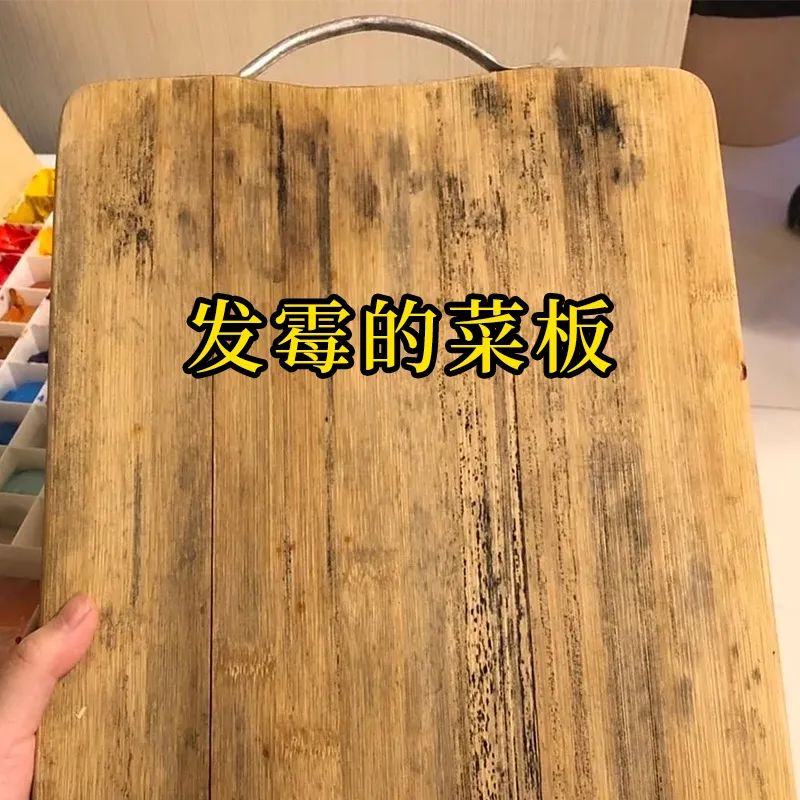 发霉的菜板